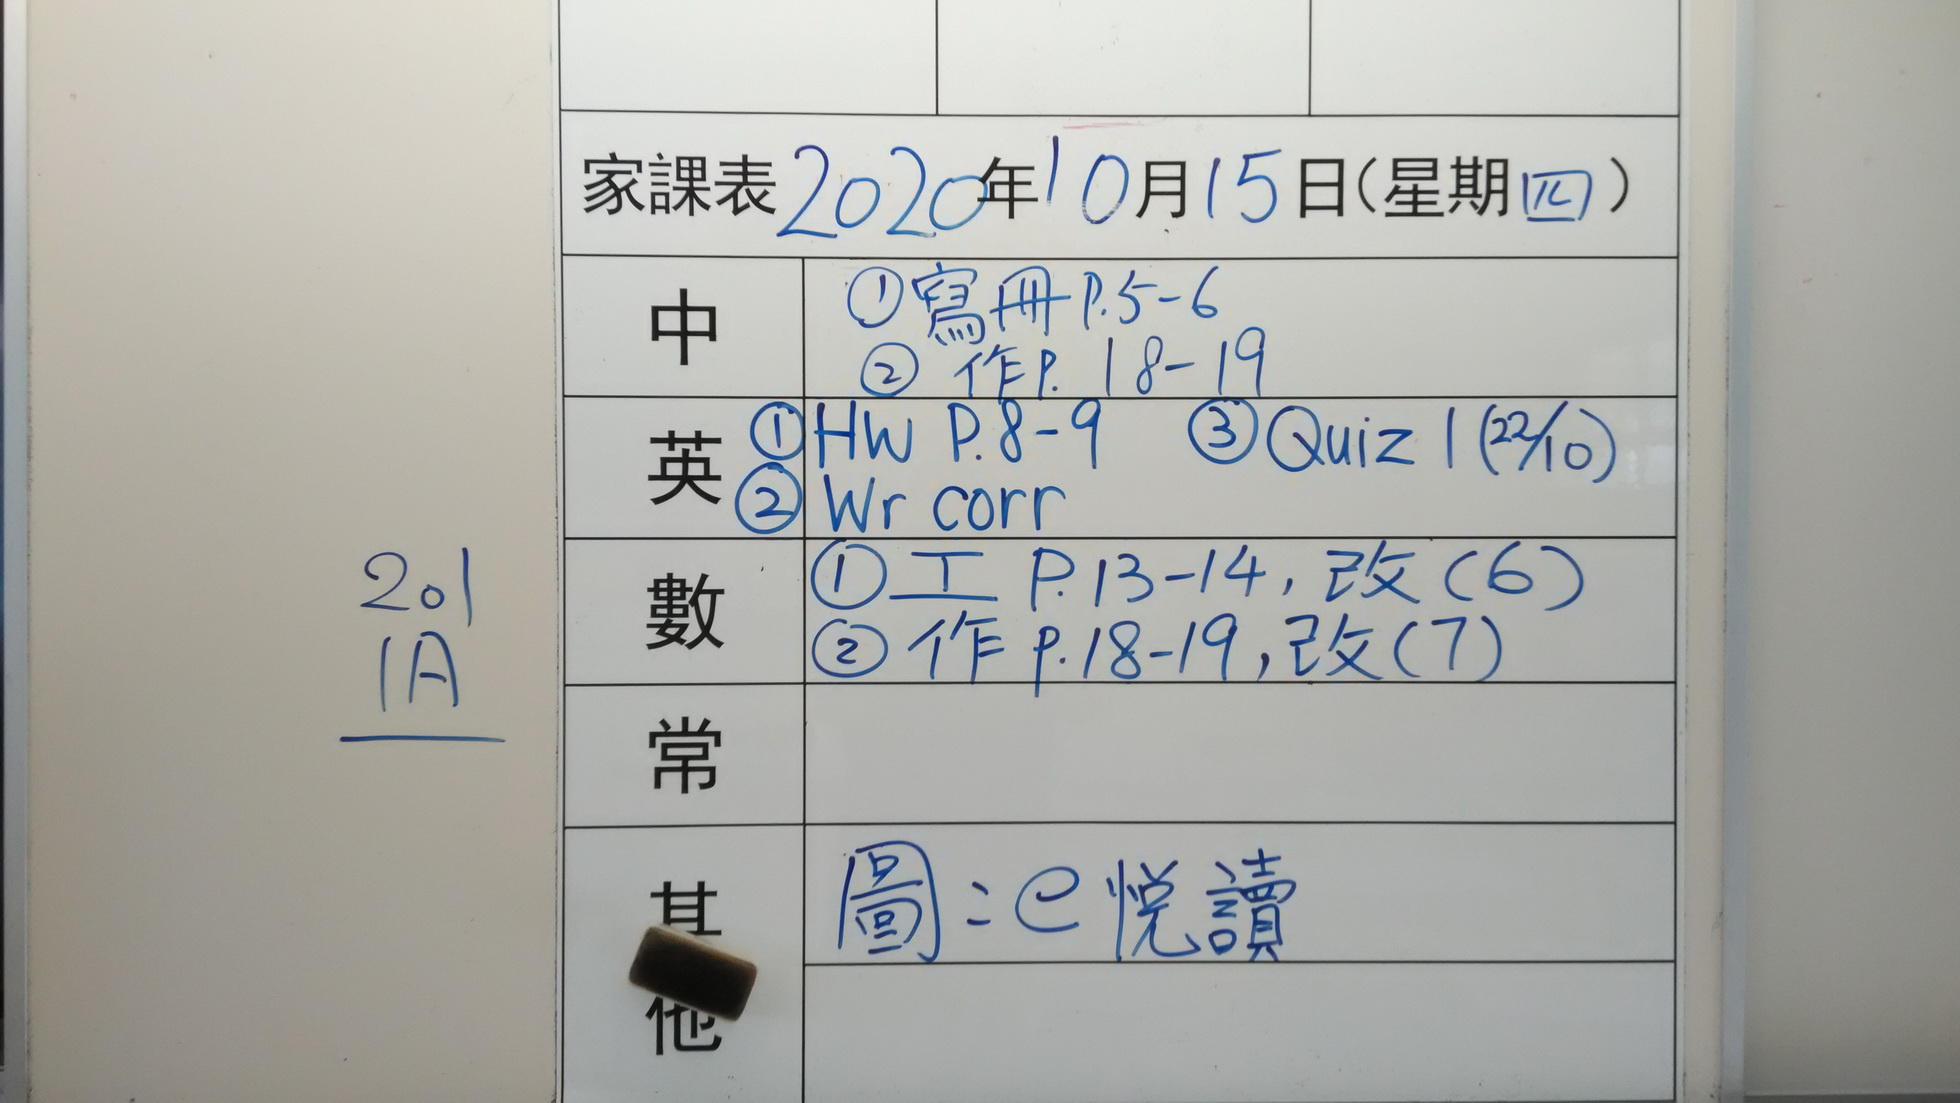 家課表2020年10月15日(星期四)
中
①寫冊P.5-6
②作P.18-19
英
①HW P.8-9 ③Quiz 1 (22/10)
②Wr corr
數
①工 P.13-14, 改(6)
②作 P.18-19, 改(7)
常
其他
圖:e悅讀
201
1A